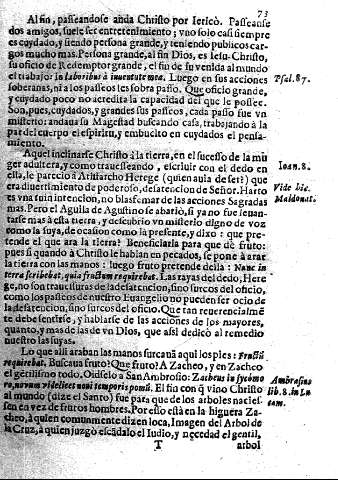 73
Al fin, passeandose anda Christo por Iericò. Passearse
dos amigos, suele ser entretenimiento; vno solo casi siempre
es cuydado, y siendo persona grande, y teniendo publicos car-
gos mucho mas. Persona grande, al fin, Dios, es Iesu-Christo,
su oficio de Redemptor grande, el fin de su venida al mundo
el trabajo: in laboribus à iuuentute mea. Luego en sus acciones
Psal. 87.
soberanas, ni a los passeos les sobra passo. Que oficio grande,
y cuydado poco no acredita la capacidad del que le possee.
Son, pues, cuydados, y grandes sus passeos, cada passo fue vn
misterio: andaua su Magestad buscando casa, trabajando à la
par del cuerpo el espiritu, y embucito en cuydados el pensa-
miento.
Aquel inclinarse Christo à la tierra, en el sucesso de la mu
ger adultera, y como trauesseando, escriuir con el dedo en
Ioan. 8.
ella, le pareciò a Aristarcho Herege (quien auia de ser?) que
era diuertimiento de poderoso, desatencion de Señor. Harto
Vide hic
es vna ruin intencion, no blasfemar de las acciones Sagradas
Maldonat.
mas. Pero el Aguila de Agustino se abatiò, si ya no fue leuan-
tarse mas à esta tierra, y descubriò vn misterio digno de voz
como la suya, de ocasion como la presente, y dixo: que pre-
tende el que ara la tierra? Beneficiarla para que dè fruto:
pues si quando à Christo le hablan en pecados, se pone à arar
la tierra con las manos: luego fruto pretende della: Nunc in
terra scribebat, quia fructum requirebat. Las rayas del dedo, Here
ge, no son trauessuras de la desatencion, sino surcos del oficio,
como los passeos de nuestro Euangelio no pueden ser ocio de
la desatencion, sino surcos del oficio. Que tan reuerencialmē
te debe sentirse, y hablarse de las acciones de los mayores,
quanto, y mas de las de vn Dios, que assi dedicò al remedio
nuestro las suyas.
Lo que alli araban las manos surcauā aqui los pies: Fructū
requirebat. Buscaua fruto? Que fruto? A Zacheo, y en Zacheo
el gētilismo todo. Oidselo à San Ambrosio: Zachæus in sycomo
Ambrosius
ro, nouum videlicet noui temporis pomū. El fin con q̄ vino Christo
lib. 8. in Lu
al mundo (dize el Santo) fue para que de los arboles nacies-
cam.
sen en vez de frutos hombres. Por esso està en la higuera Za-
cheo, à quien comunmente dizen loca, Imagen del Arbol de
la Cruz, à quien juzgò escādalo el Iudio, y necedad el gentil,
T
arbol